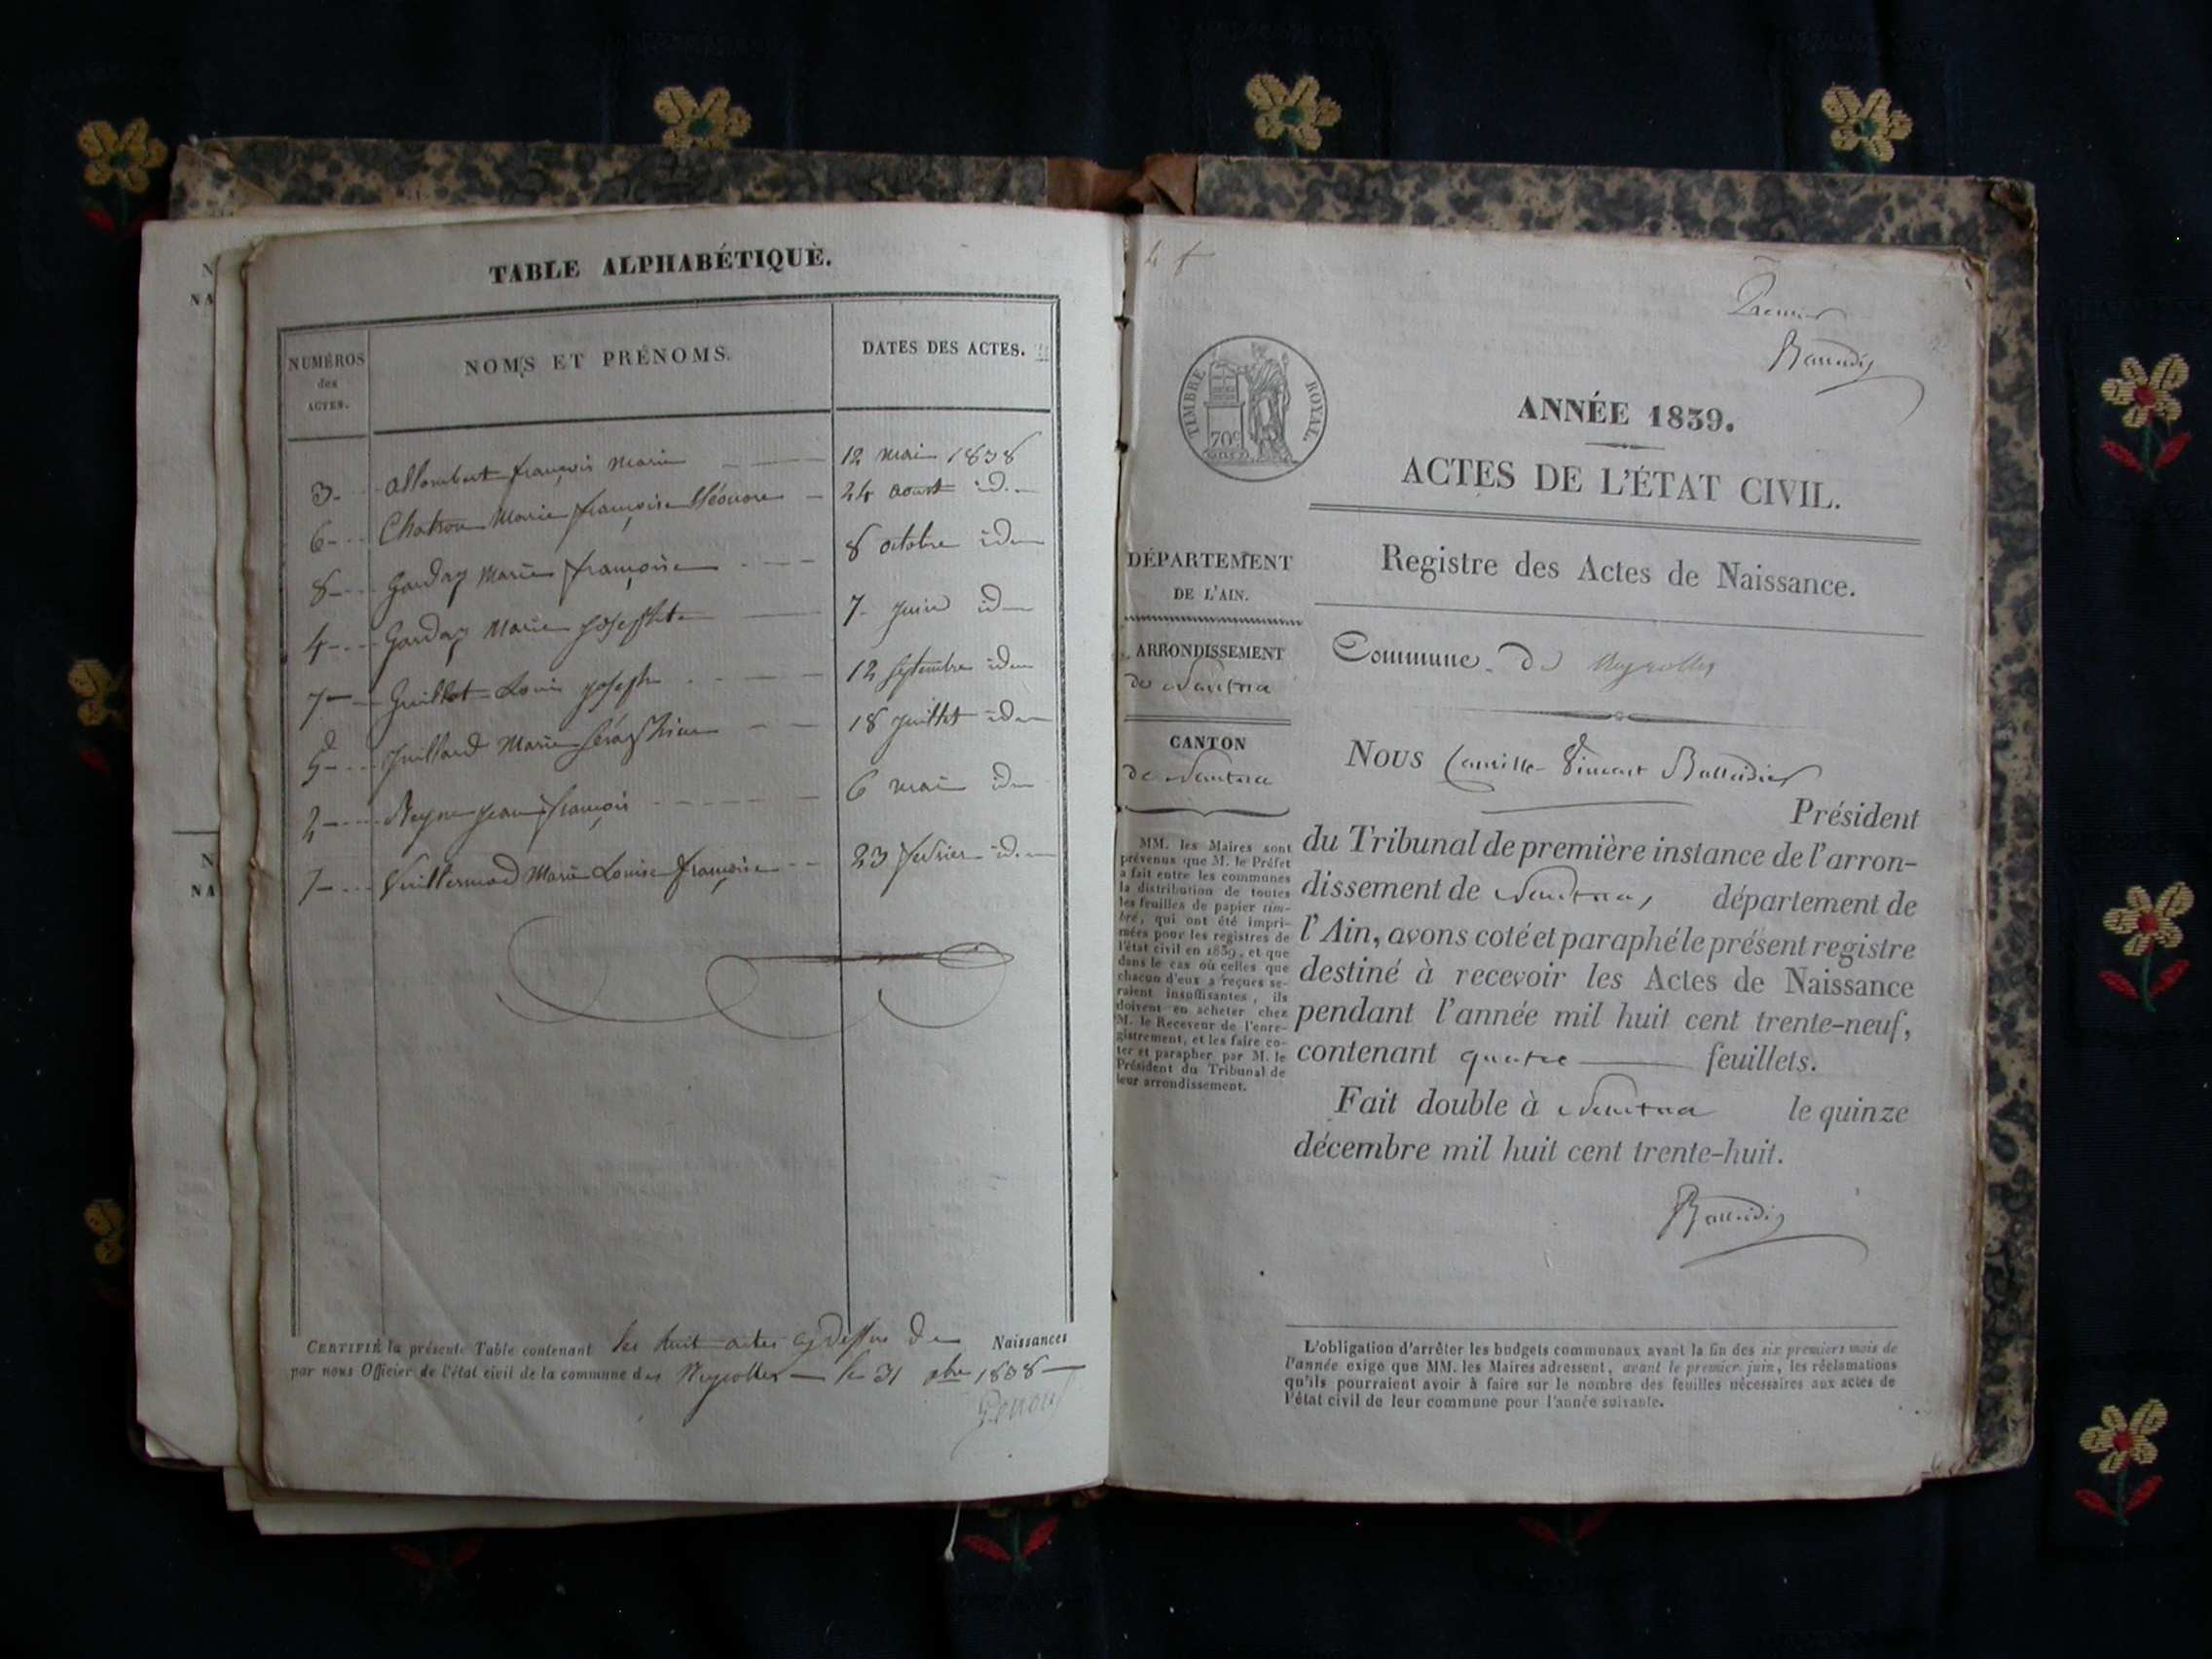 TABLE ALPHABÉTIQUE.
NUMÉROS des ACTES.
NOMS ET PRÉNOMS.
DATES DES ACTES.
3 Allombert françois Marie 12 mai 1838
6 Chatron Marie françoise Eléonore 24 aoust id.
8 Gouday Marie françoise 8 octobre idem
4 Gouday Marie Josephte 7 juin idem
7 Guillot Louis joseph 12 septembre idem
5 Juillard Marie Séraphine 18 juillet idem
2 Neyme jean françois 6 mai idem
1 Vuillermod Marie Louise françoise 23 fevrier id.
CERTIFIÉ la présente Table contenant les huit actes cy dessus de Naissances
par nous Officier de l'état civil de la commune des Neyrolles le 31 xbre 1838
N
NA
N
NA
Premier
TIMBRE ROYAL.
70c
ANNÉE 1839.
ACTES DE L'ÉTAT CIVIL.
Registre des Actes de Naissance.
DÉPARTEMENT
DE L'AIN.
ARRONDISSEMENT
de Nantua
CANTON
de Nantua
MM. les Maires sont
prévenus que M. le Préfet
a fait entre les communes
la distribution de toutes
les feuilles de papier tim-
bré, qui ont été impri-
mées pour les registres de
l'état civil en 1839, et que
dans le cas où celles que
chacun d'eux a reçues se-
raient insuffisantes, ils
doivent en acheter chez
M. le Receveur de l'enre-
gistrement, et les faire co-
ter et parapher par M. le
Président du Tribunal de
leur arrondissement.
Commune de Neyrolles
NOUS Camille Vincent
Président
du Tribunal de première instance de l'arron-
dissement de Nantua, département de
l'Ain, avons coté et paraphé le présent registre
destiné à recevoir les Actes de Naissance
pendant l'année mil huit cent trente-neuf,
contenant quatre feuillets.
Fait double à Nantua le quinze
décembre mil huit cent trente-huit.
L'obligation d'arrêter les budgets communaux avant la fin des six premiers mois de
l'année exige que MM. les Maires adressent, avant le premier juin, les réclamations
qu'ils pourraient avoir à faire sur le nombre des feuilles nécessaires aux actes de
l'état civil de leur commune pour l'année suivante.